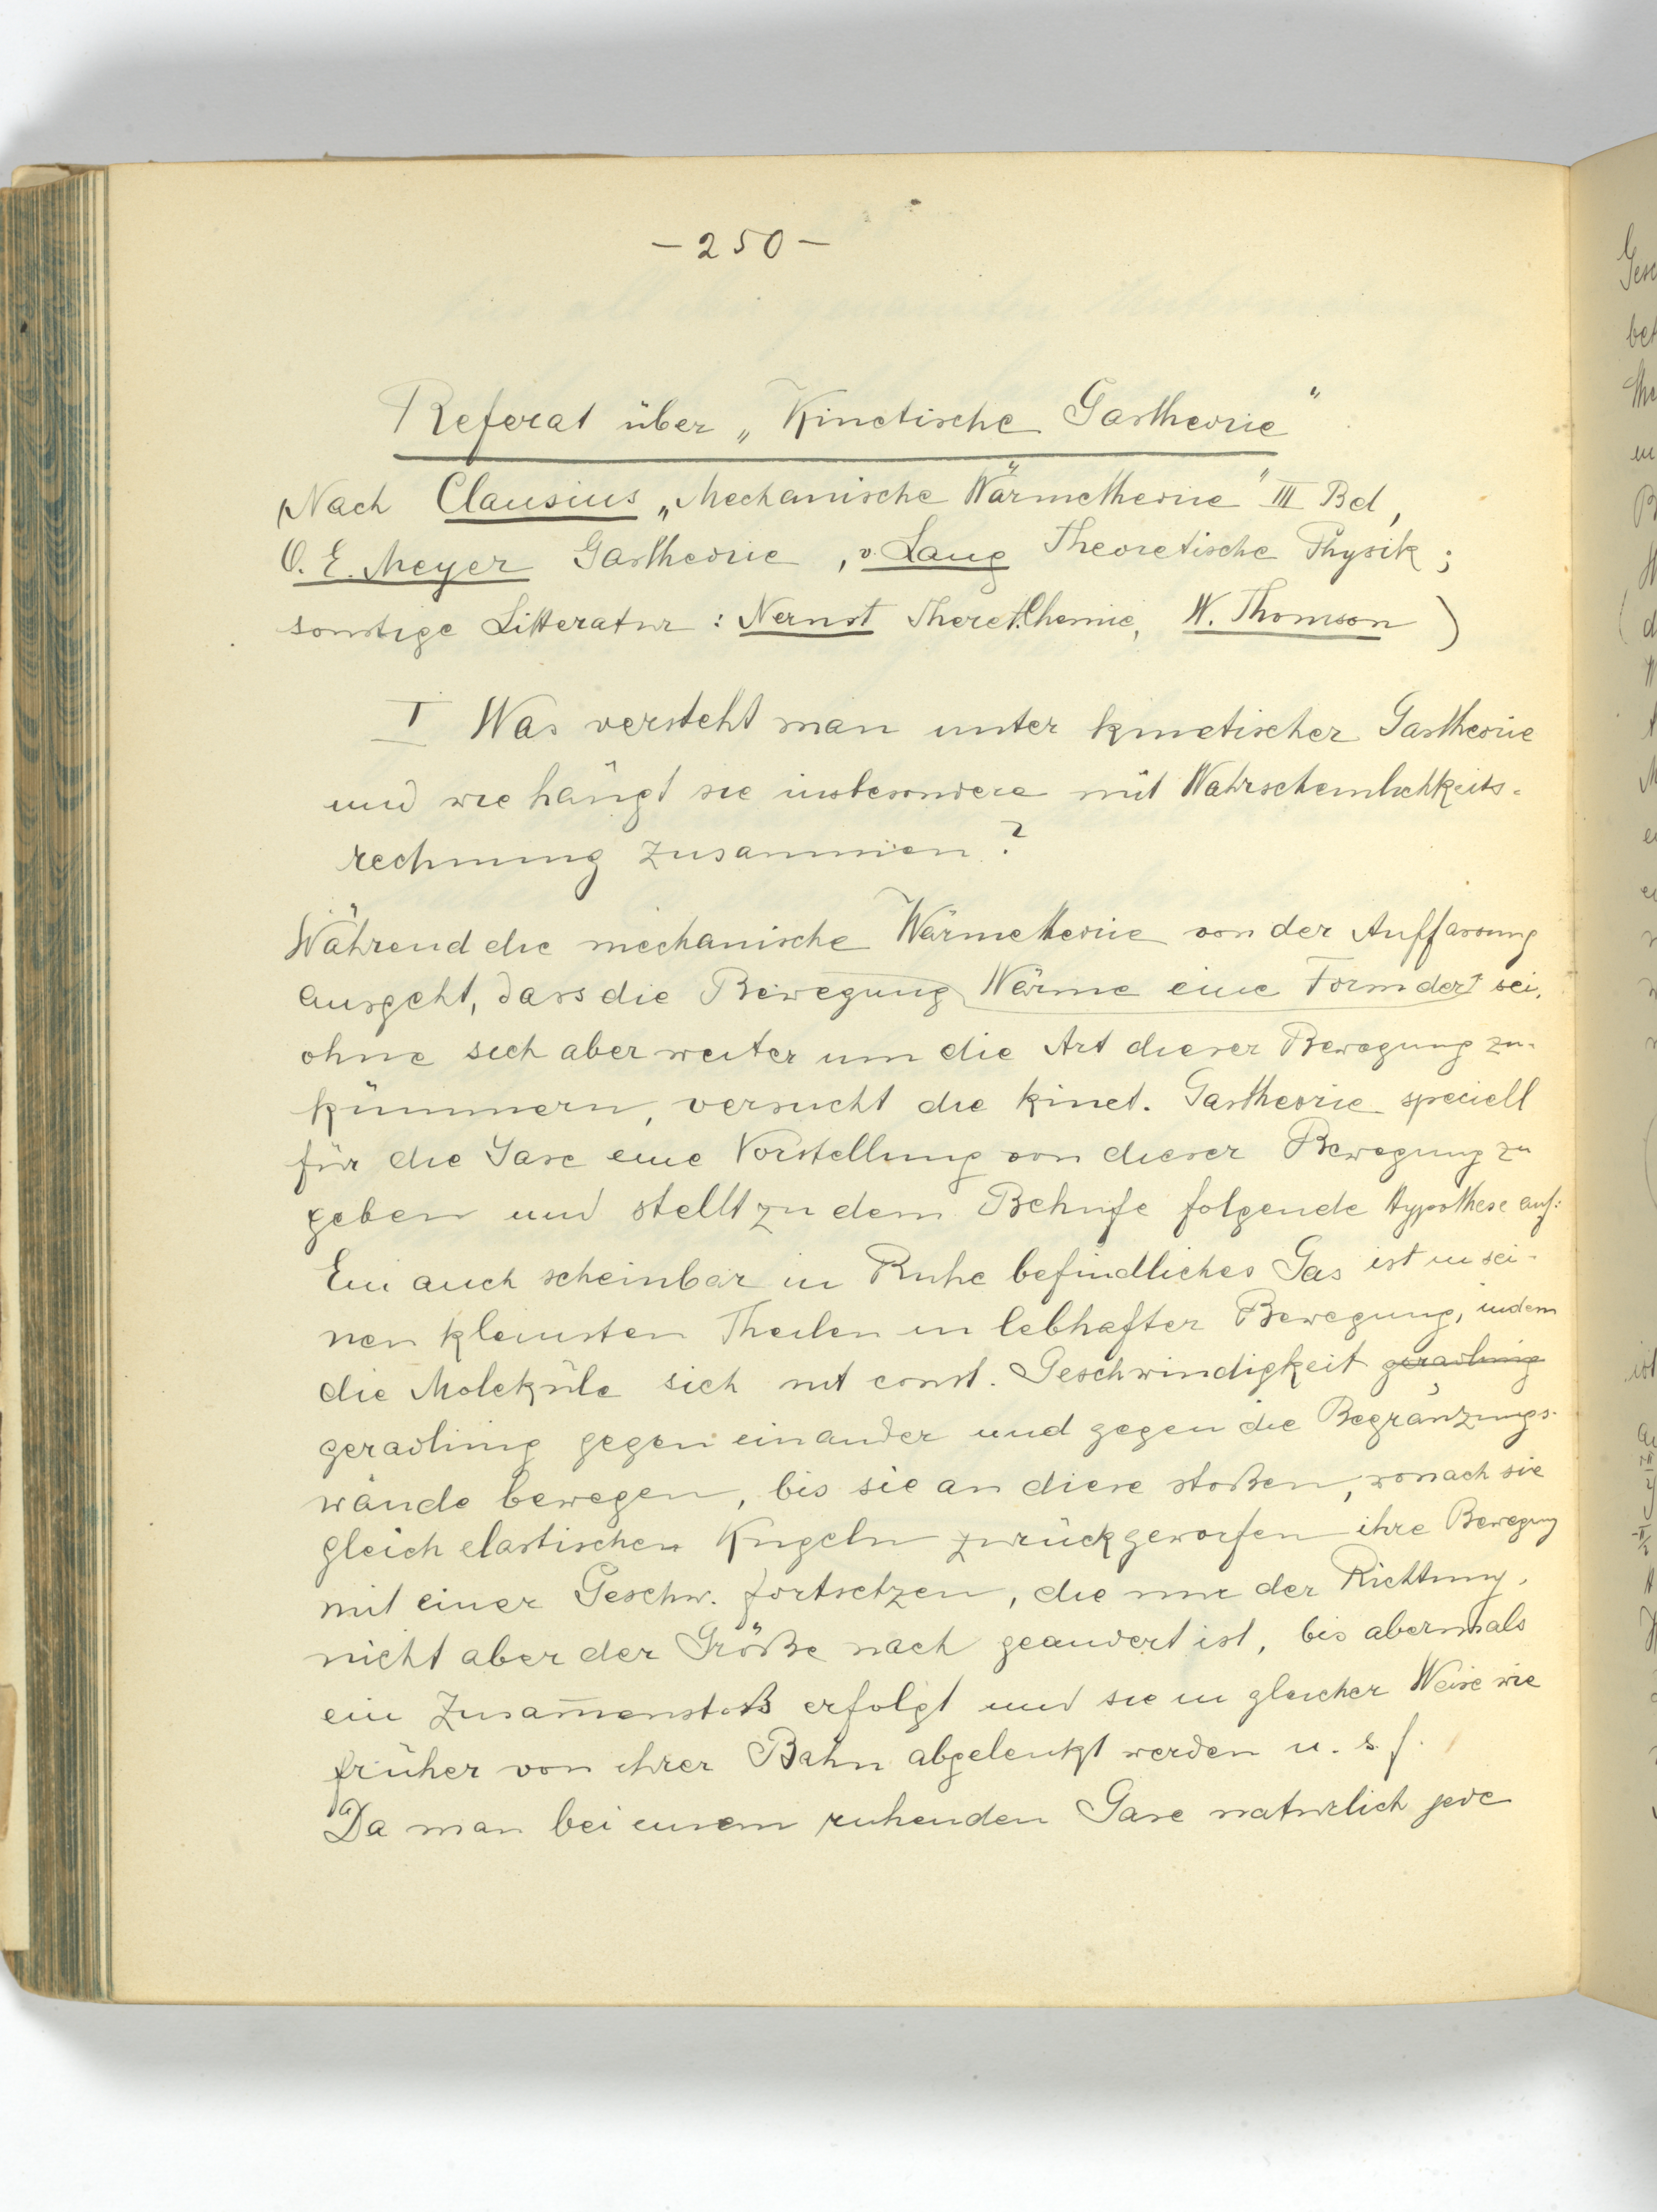 – 250 –
Referat über „Kinetische Gastheorie“
(Nach Clausius „Mechanische Wärmetheorie“ III Bd,
O. E. Meyer Gastheorie, v. Lang Theoretische Physik;
sonstige Litteratur: Nernst Theret. Chemie, W. Thomson)
I Was versteht man unter kinetischer Gastheorie
und wie hängt sie insbesondere mit Wahrscheinlichkeits-
rechnung zusammen?
Während die mechanische Wärmetheorie von der Auffassung
ausgeht, dass die Bewegung Wärme eine Form der sei,
ohne sich aber weiter um die Art dieser Bewegung zu
kümmern, versucht die kinet. Gastheorie speciell
für die Gase eine Vorstellung von dieser Bewegung zu
geben und stellt zu dem Behufe folgende Hypothese auf:
Ein auch scheinbar in Ruhe befindliches Gas ist in sei-
nen kleinsten Theilen in lebhafter Bewegung, indem
die Moleküle sich mit const. Geschwindigkeit geradlinig
geradlinig gegen einander und gegen die Begränzungs-
wände bewegen, bis sie an diese stoßen, wonach sie
gleich elastischen Kugeln zurückgeworfen ihre Bewegung
mit einer Geschw. fortsetzen, die nur der Richtung,
nicht aber der Größe nach geändert ist, bis abermals
ein Zusam̅enstoß erfolgt und sie in gleicher Weise wie
früher von ihrer Bahn abgelenkt werden u. s. f.
Da man bei einem ruhenden Gase natürlich jede